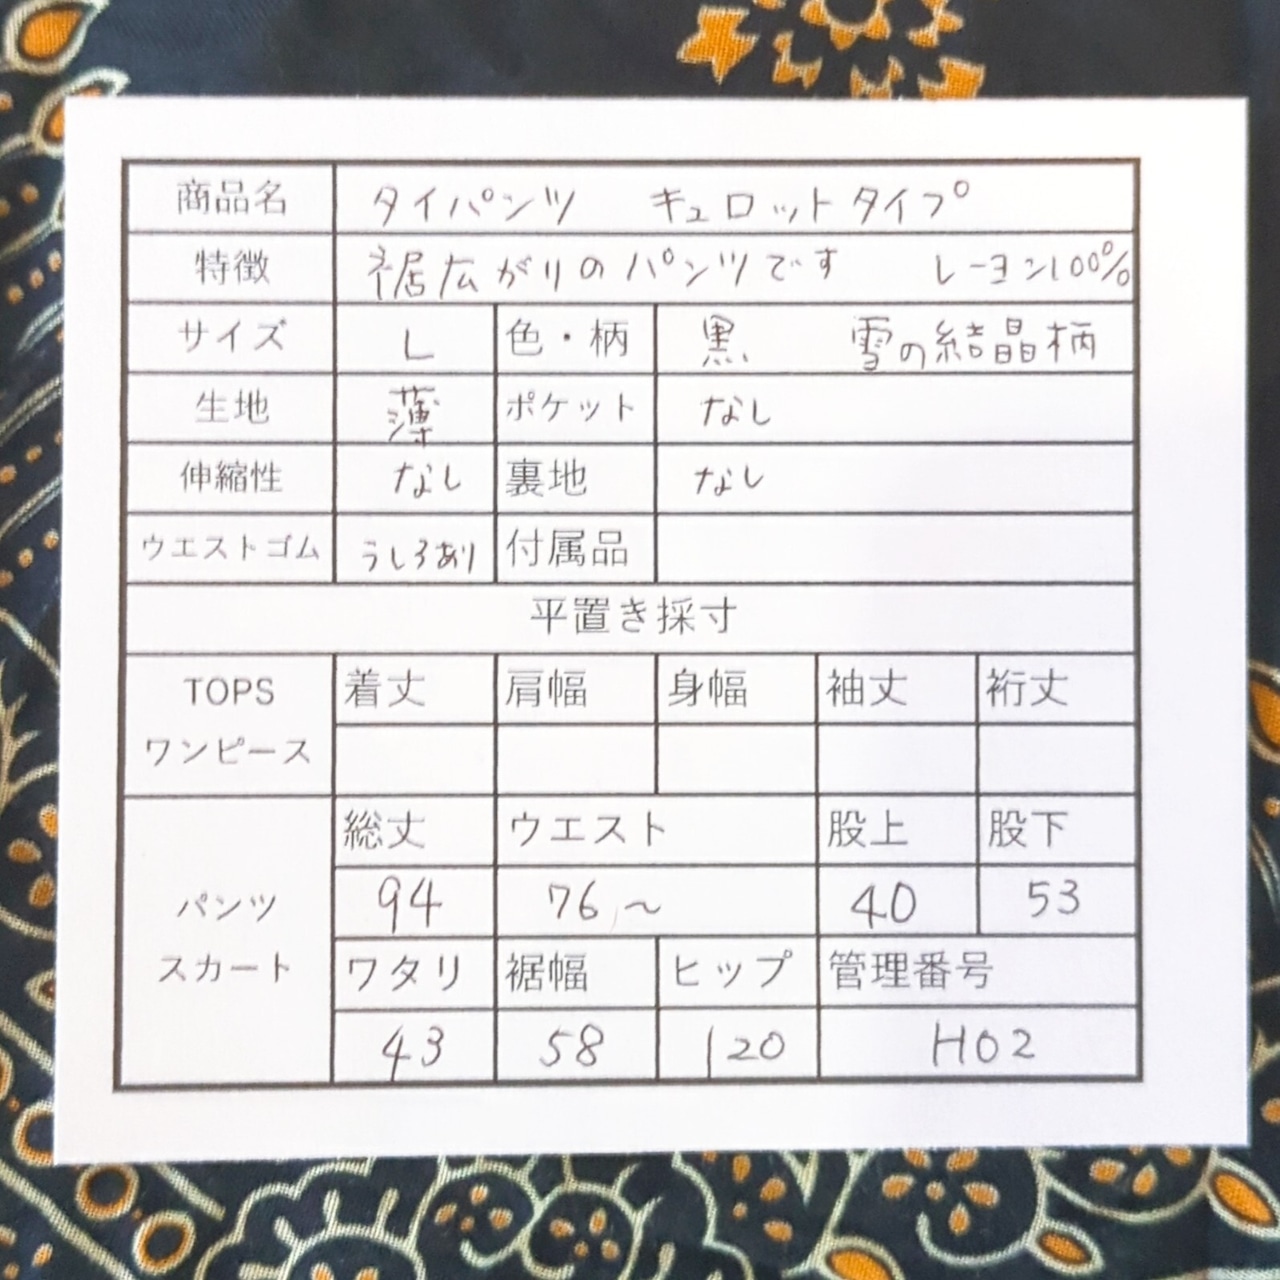 商品名 タイパンツ キュロットタイプ
特徴 裾広がりのパンツです レーヨン100%
サイズ L 色・柄 黒 雪の結晶柄
生地 薄 ポケット なし
伸縮性 なし 裏地 なし
ウエストゴム うしろあり 付属品
平置き採寸
TOPS 着丈 肩幅 身幅 袖丈 裄丈
ワンピース
総丈 ウエスト 股上 股下
パンツ 94 76～ 40 53
スカート ワタリ 裾幅 ヒップ 管理番号
43 58 120 H02